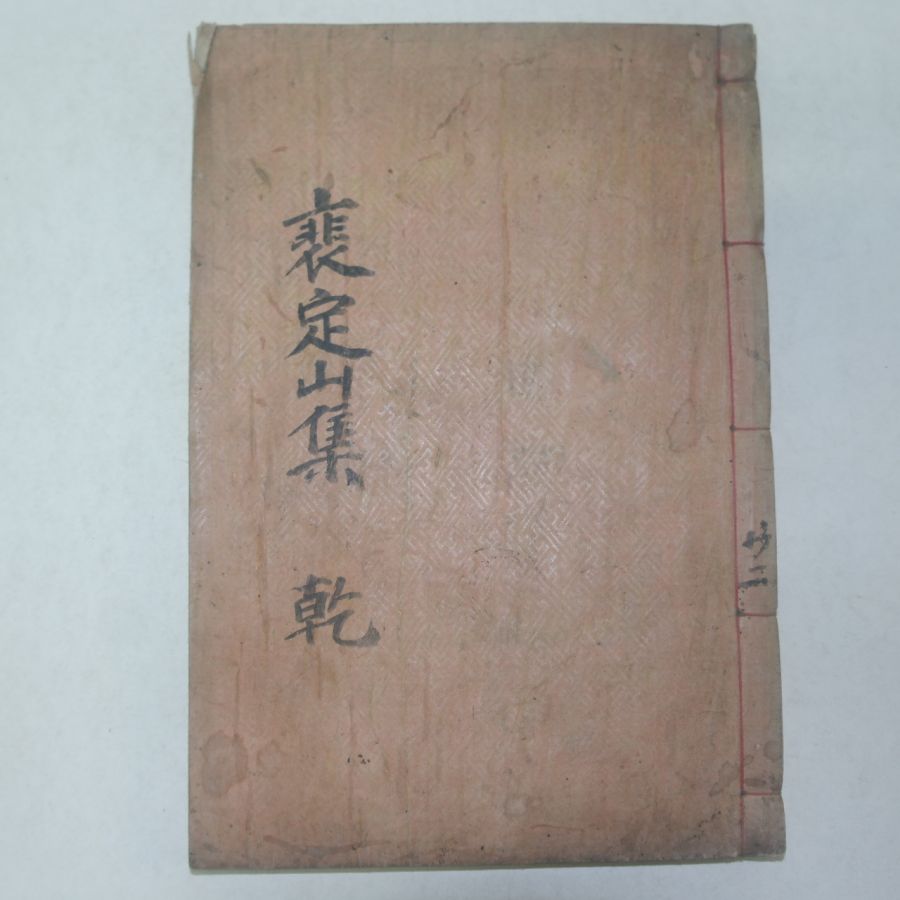 裵定山集 乾
共二